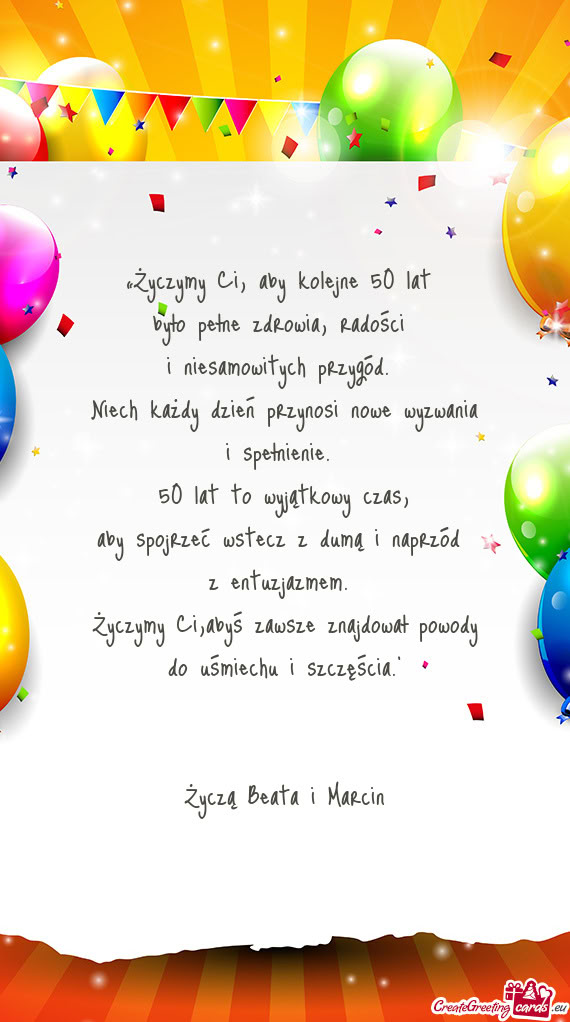 „Życzymy Ci, aby kolejne 50 lat
było pełne zdrowia, radości
i niesamowitych przygód.
Niech każdy dzień przynosi nowe wyzwania
i spełnienie.
50 lat to wyjątkowy czas,
aby spojrzeć wstecz z dumą i naprzód
z entuzjazmem.
Życzymy Ci,abyś zawsze znajdował powody
do uśmiechu i szczęścia."
Życzą Beata i Marcin
CreateGreetingcards.eu